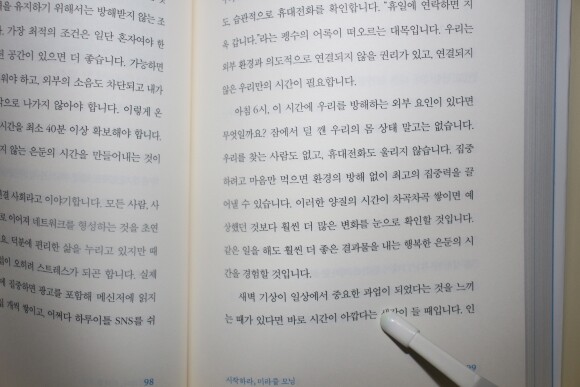 을 유지하기 위해서는 방해받지 않는 조
. 가장 최적의 조건은 일단 혼자여야 한
 공간이 있으면 더 좋습니다. 가능하면
워야 하고, 외부의 소음도 차단되고 내가
으로 나가지 않아야 합니다. 이렇게 온
시간을 최소 40분 이상 확보해야 합니다.
지 않는 은둔의 시간을 만들어내는 것이
결 사회라고 이야기합니다. 모든 사람, 사
로 이어져 네트워크를 형성하는 것을 초연
요. 덕분에 편리한 삶을 누리고 있지만 때
이 오히려 스트레스가 되곤 합니다. 실제
에 집중하면 광고를 포함해 메신저에 읽지
 개씩 쌓이고, 어쩌다 하루이틀 SNS를 쉬
98
도 습관적으로 휴대전화를 확인합니다. “휴일에 연락하면 지
옥 갑니다.”라는 펭수의 어록이 떠오르는 대목입니다. 우리는
외부 환경과 의도적으로 연결되지 않을 권리가 있고, 연결되지
않은 우리만의 시간이 필요합니다.
아침 6시, 이 시간에 우리를 방해하는 외부 요인이 있다면
무엇일까요? 잠에서 덜 깬 우리의 몸 상태 말고는 없습니다.
우리를 찾는 사람도 없고, 휴대전화도 울리지 않습니다. 집중
하려고 마음만 먹으면 환경의 방해 없이 최고의 집중력을 끌
어낼 수 있습니다. 이러한 양질의 시간이 차곡차곡 쌓이면 예
상했던 것보다 훨씬 더 많은 변화를 눈으로 확인할 것입니다.
같은 일을 해도 훨씬 더 좋은 결과물을 내는 행복한 은둔의 시
간을 경험할 것입니다.
새벽 기상이 일상에서 중요한 과업이 되었다는 것을 느끼
는 때가 있다면 바로 시간이 아깝다는 생각이 들 때입니다. 인
시작하라, 미라클 모닝